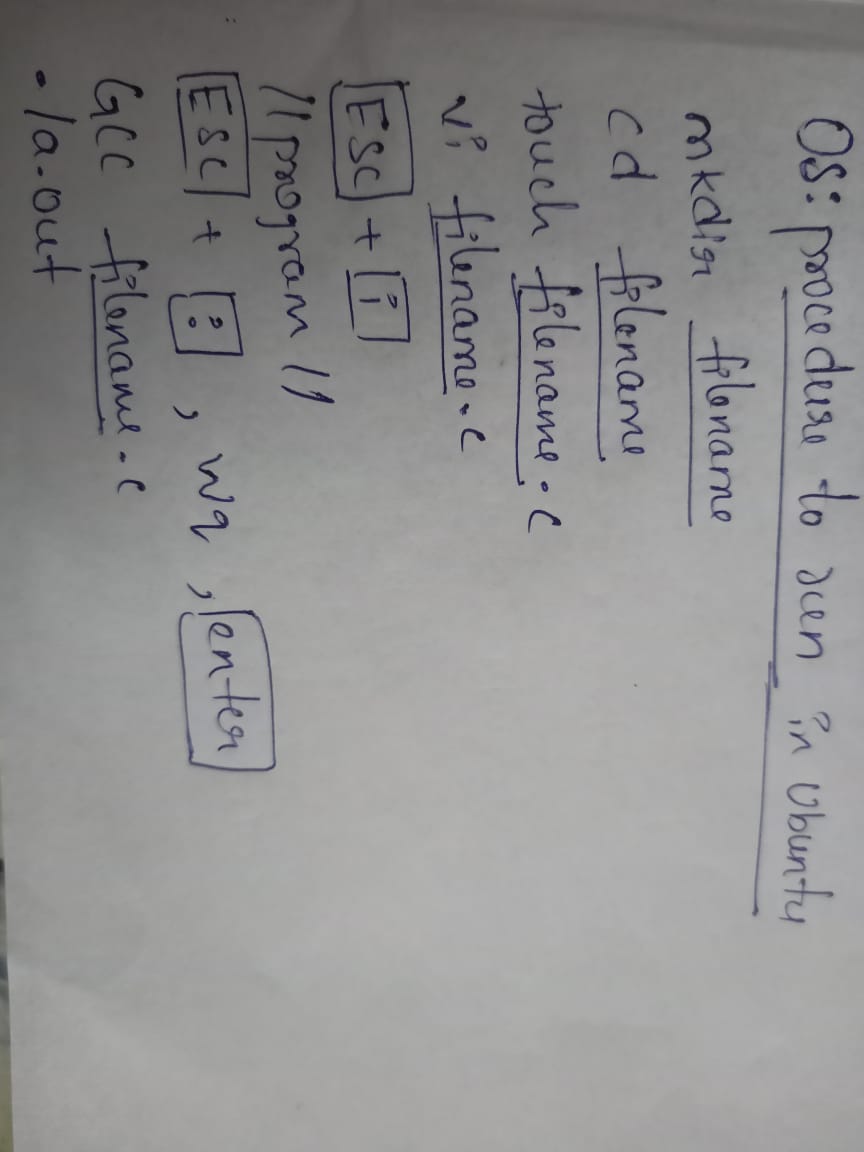 OS: procedure to run in Ubuntu
mkdir filename
cd filename
touch filename.c
vi filename.c
Esc + i
// program //
Esc + : , wq , enter
GCC filename.c
./a.out